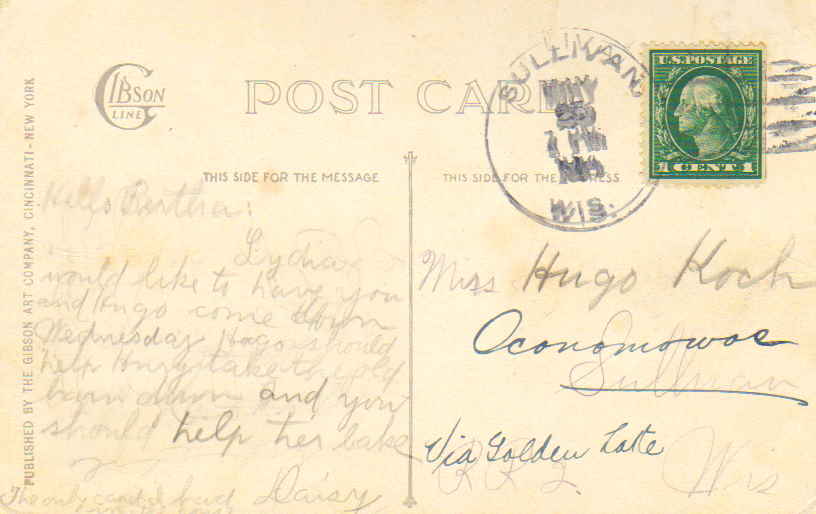 GIBSON
LINE
POST CARD
SULLIVAN,
MAY
25
1 PM
WIS.
U.S. POSTAGE
1 CENT 1
THIS SIDE FOR THE MESSAGE
THIS SIDE FOR THE ADDRESS
PUBLISHED BY THE GIBSON ART COMPANY, CINCINNATI - NEW YORK
Hello Bertha:
Lydia
would like to have you
and Hugo come down
Wednesday Hugo should
help Hugy take the old
barn down and you
should help her bake
Daisy
The only card I had
Miss Hugo Koch
Oconomowoc
Sullivan
Via Golden Lake
R.R. 2. Wis